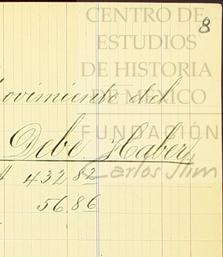 8
CENTRO DE
ESTUDIOS
DE HISTORIA
DE MÉXICO
ovimiento del
FUNDACIÓN
Debe Haber
Carlos Slim
432 82
56.86